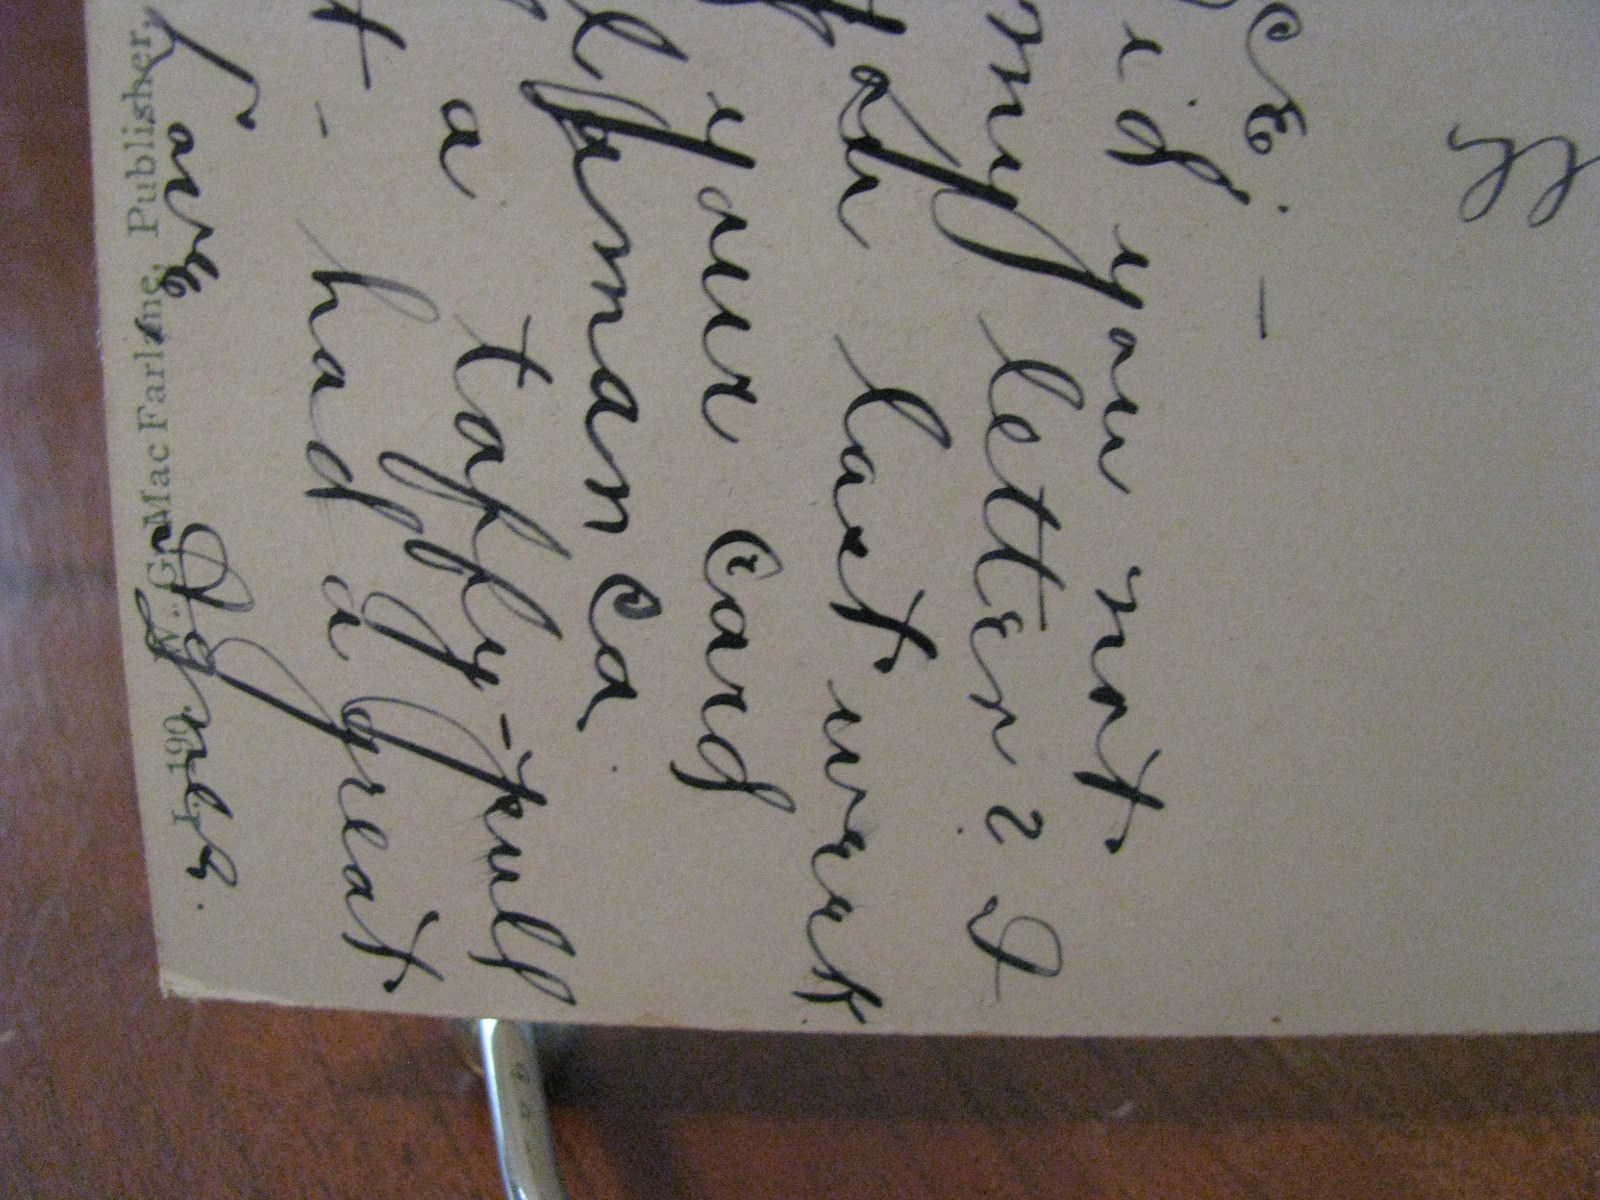 ce. -
id you not
my letter? I
you last week
your card
man ca
a taffy-pull
t - had a great
Love
Agnes.
W. G. MacFarlane, Publisher,